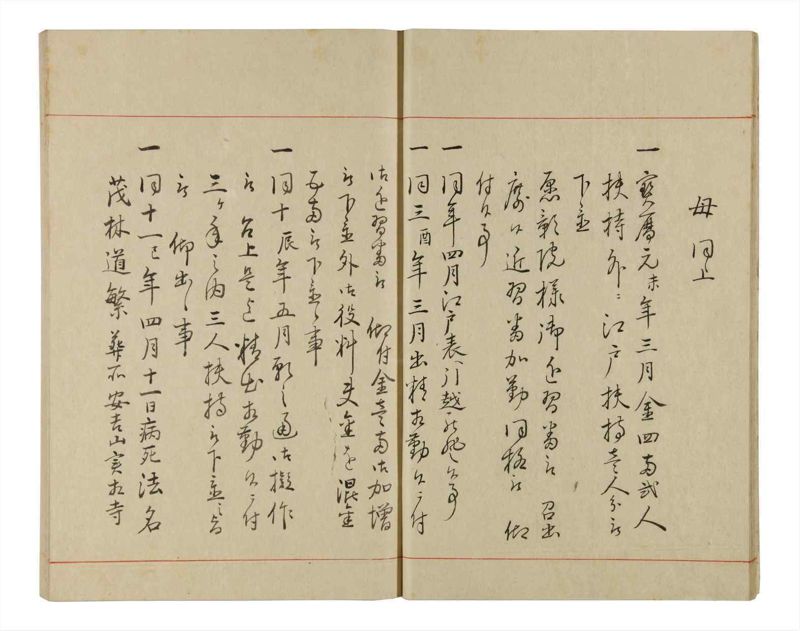 母 同上
一 寶暦元未年三月金四両弐人
扶持外ニ江戸扶持壱人分被
下置
愿彰院様御近習番被 召出
候 近習番加勤同格被 仰
付候事
一 同年四月江戸表ヘ引越 候事
一 同三酉年三月出精相勤候ニ付
御近習番被 仰付金壱両御加増
被下置外御役料 金 混金
五両被下置候事
一 同十辰年五月願之通御擬作
被 召上是迄精出相勤候ニ付
三ヶ年之内三人扶持被下置之旨
被 仰出候事
一 同十一巳年四月十一日病死法名
茂林道繁 葬所 安吉山実相寺